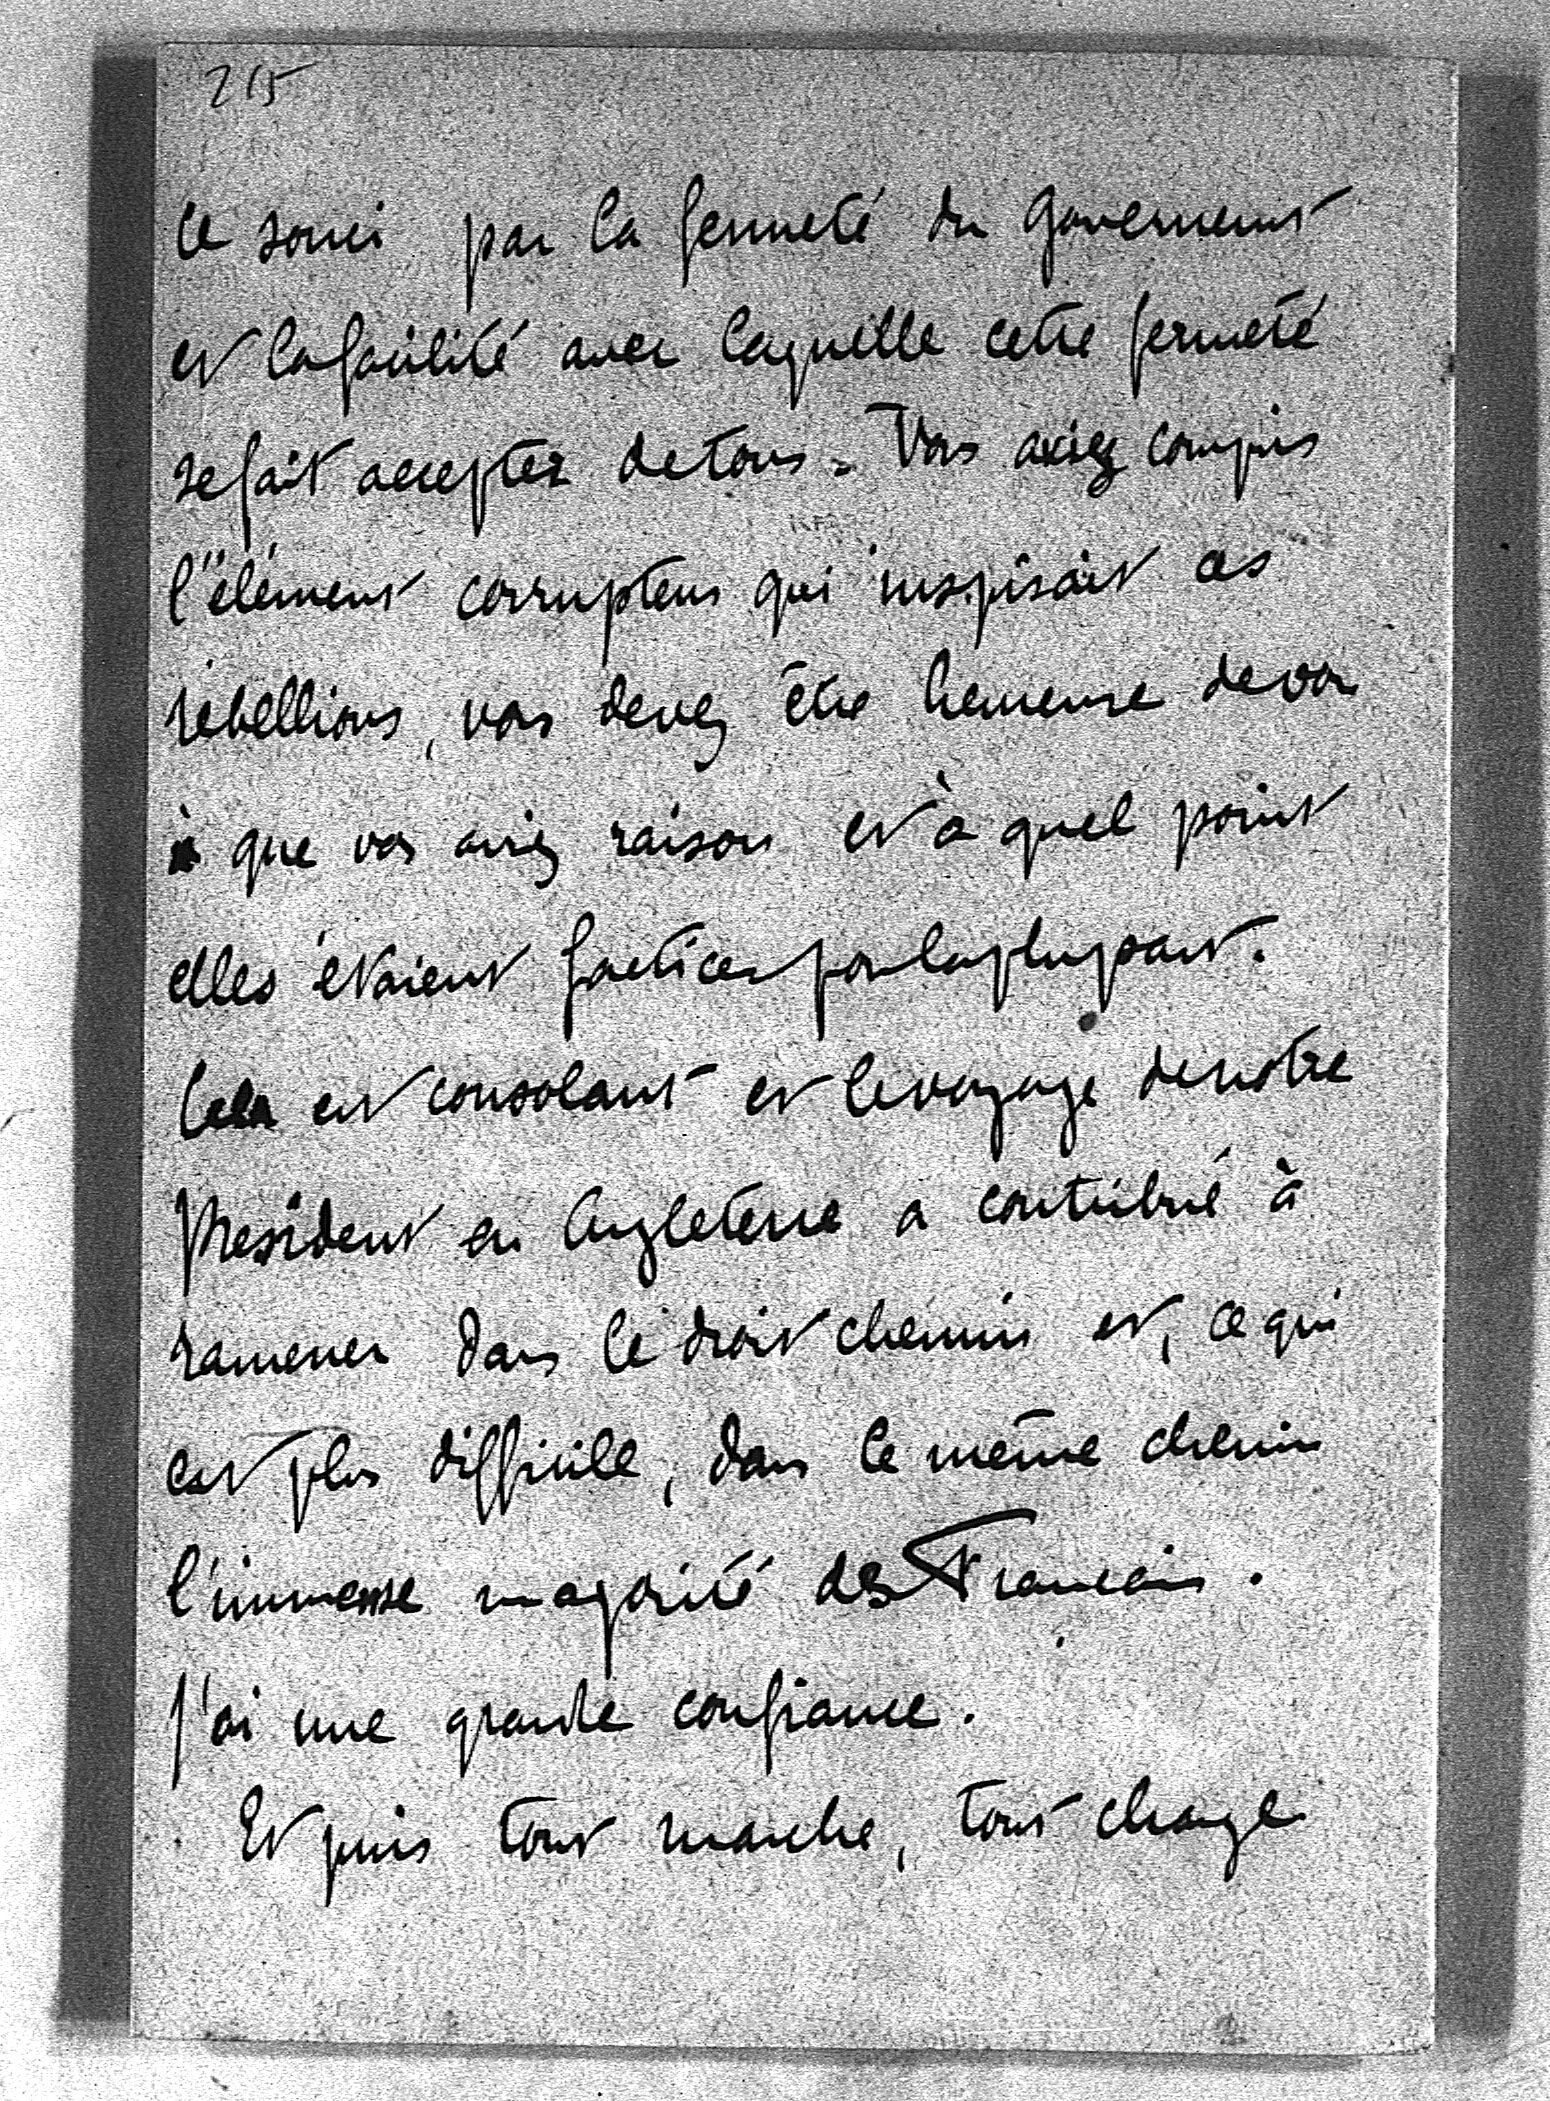 215
ce souci par la fermeté du gouvernement
et la facilité avec laquelle cette fermeté
se fait accepter de tous. Vous aviez compris
l'élément corrupteur qui inspirait ces
rébellions, vous devez être heureuse de voir
que vous aviez raison et à quel point
elles étaient factices pour la plupart.
Cela est consolant et le voyage de notre
Président en Angleterre a contribué à
ramener dans le droit chemin et, ce qui
est plus difficile, dans le même chemin
l'immense majorité des Français.
J'ai une grande confiance.
Et puis tout marche, tout change